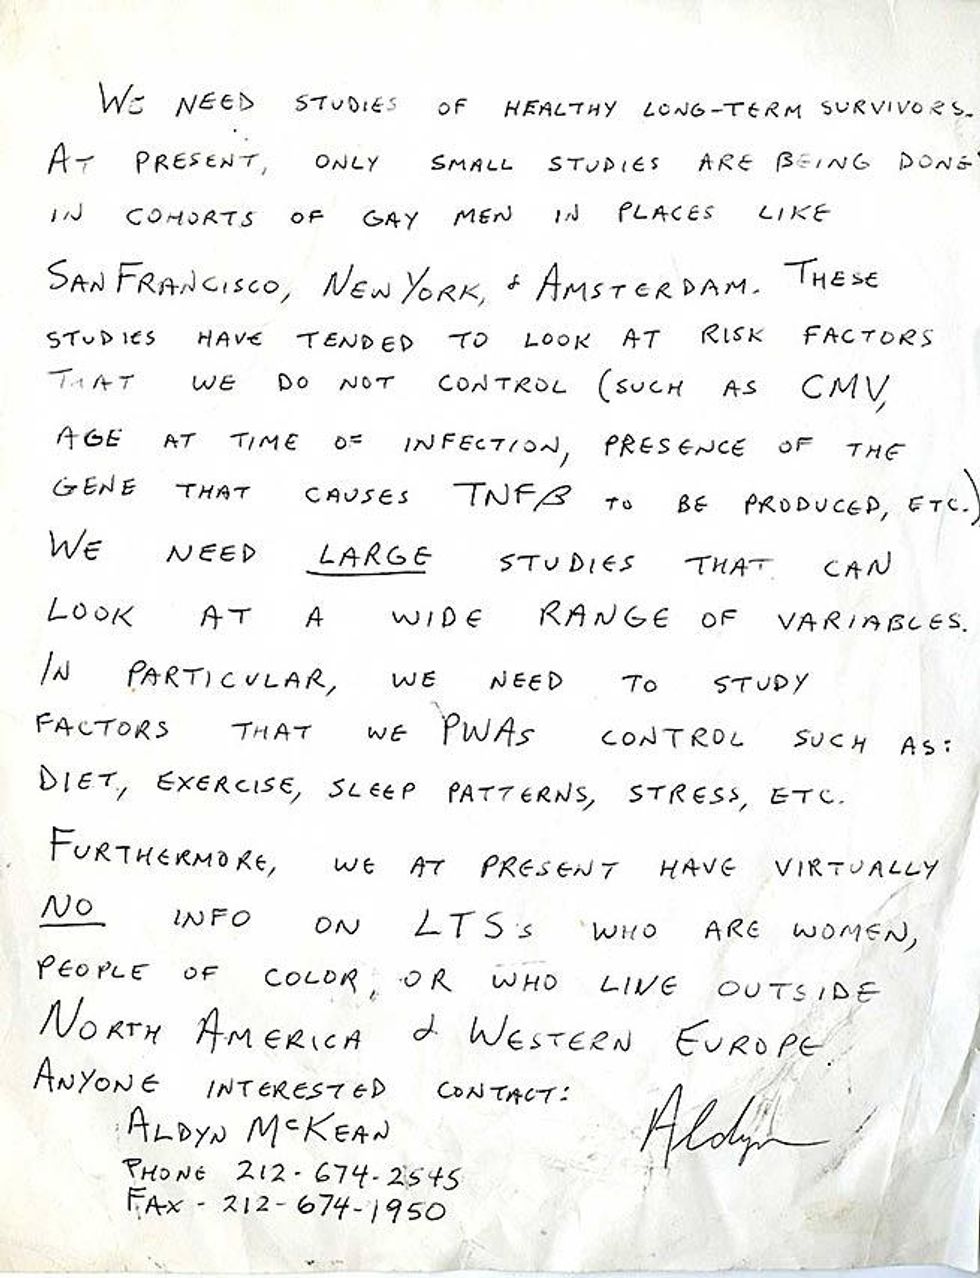 We need studies of healthy long-term survivors.
At present, only small studies are being done
in cohorts of gay men in places like
San Francisco, New York, & Amsterdam. These
studies have tended to look at risk factors
that we do not control (such as CMV,
age at time of infection, presence of the
gene that causes TNFβ to be produced, etc.)
We need LARGE studies that can
look at a wide range of variables.
In particular, we need to study
factors that we PWAs control such as:
diet, exercise, sleep patterns, stress, etc.
Furthermore, we at present have virtually
NO info on LTSs who are women,
people of color, or who live outside
North America & Western Europe.
Anyone interested contact:
Aldyn McKean
Aldyn
Phone 212-674-2545
Fax - 212-674-1950